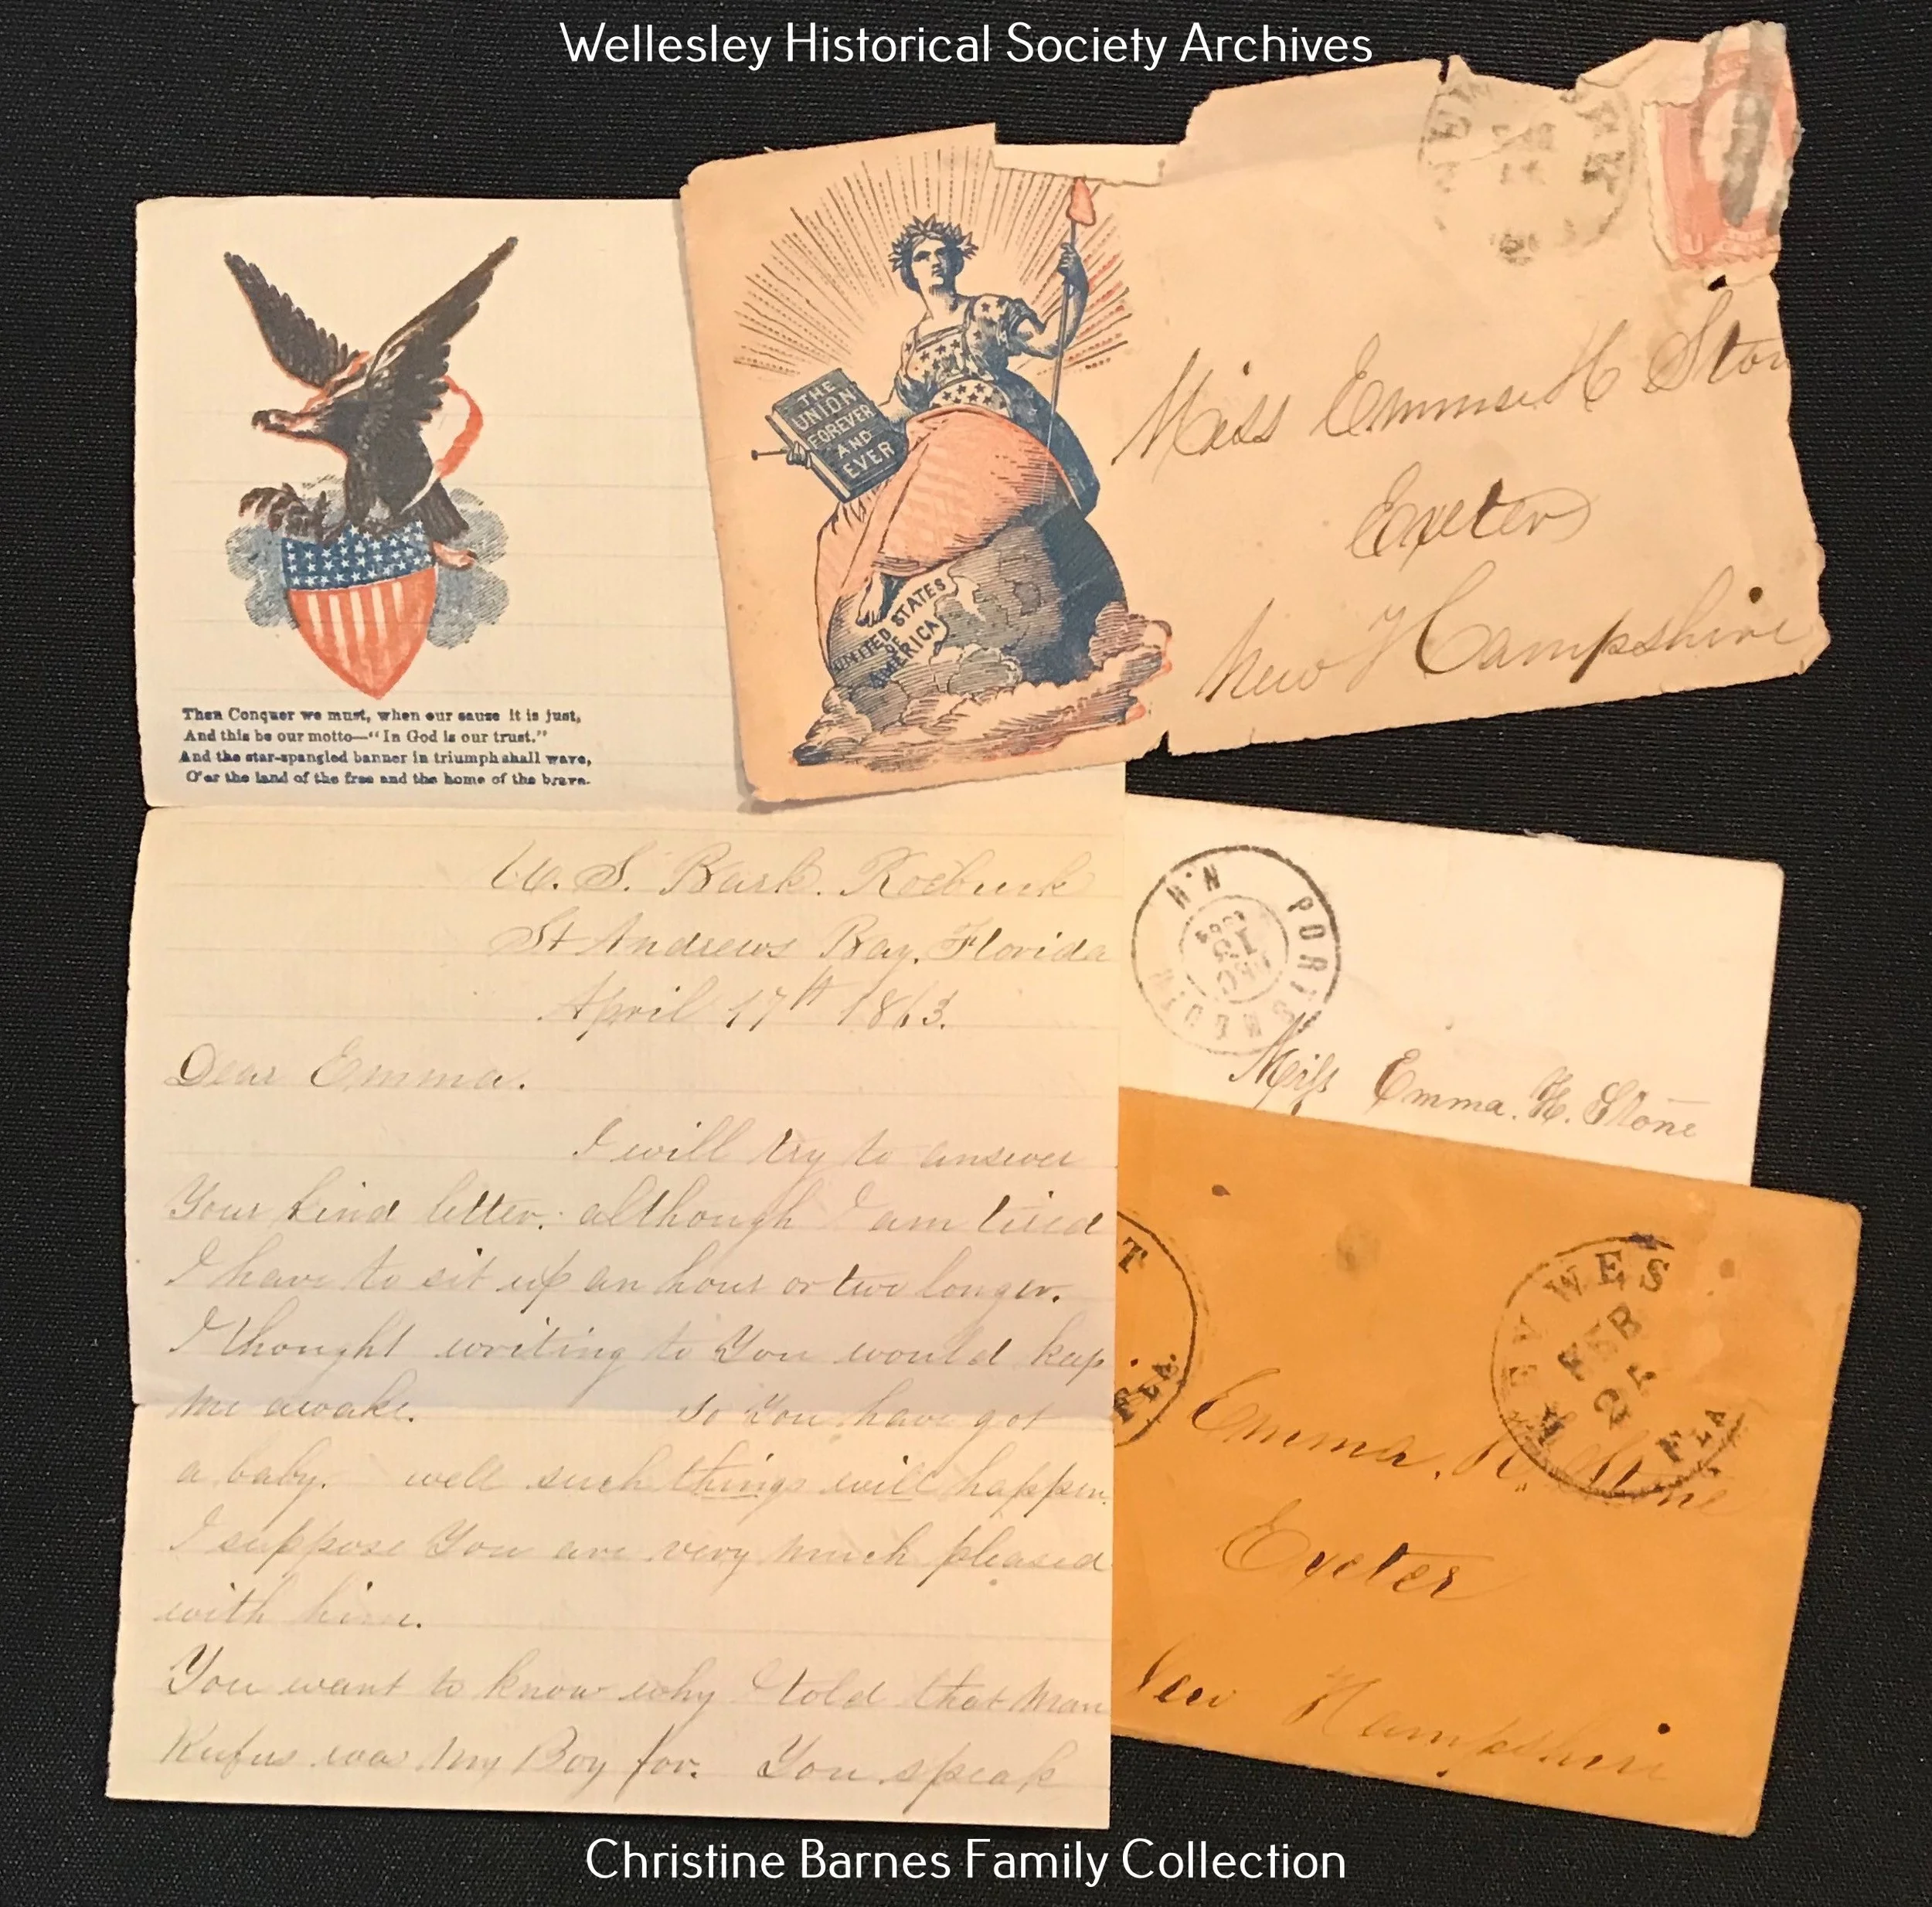 Wellesley Historical Society Archives
THE
UNION
FOREVER
AND
EVER
UNITED STATES
OF
AMERICA
Miss Emma H Ston
Exeter
New Hampshire
Then Conquer we must, when our cause it is just,
And this be our motto—“In God is our trust.”
And the star-spangled banner in triumph shall wave,
O'er the land of the free and the home of the brave.
U. S. Bark. Roebuck
St Andrews Bay. Florida
April 17th 1863.
Dear Emma.
I will try to answer
Your kind letter. although I am tired
I have to sit up an hour or two longer.
I thought writing to You would keep
me awake. so You have got
a baby. well such things will happen.
I suppose You are very much pleased
with him.
You want to know why I told that man
Rufus was My Boy for. You speak
PORTSMOUTH N.H
DEC
15
Miss Emma. H. Stone
T
FLA.
KEY WEST
FEB
25
FLA
Emma. H. Stone
Exeter
New Hampshire
Christine Barnes Family Collection